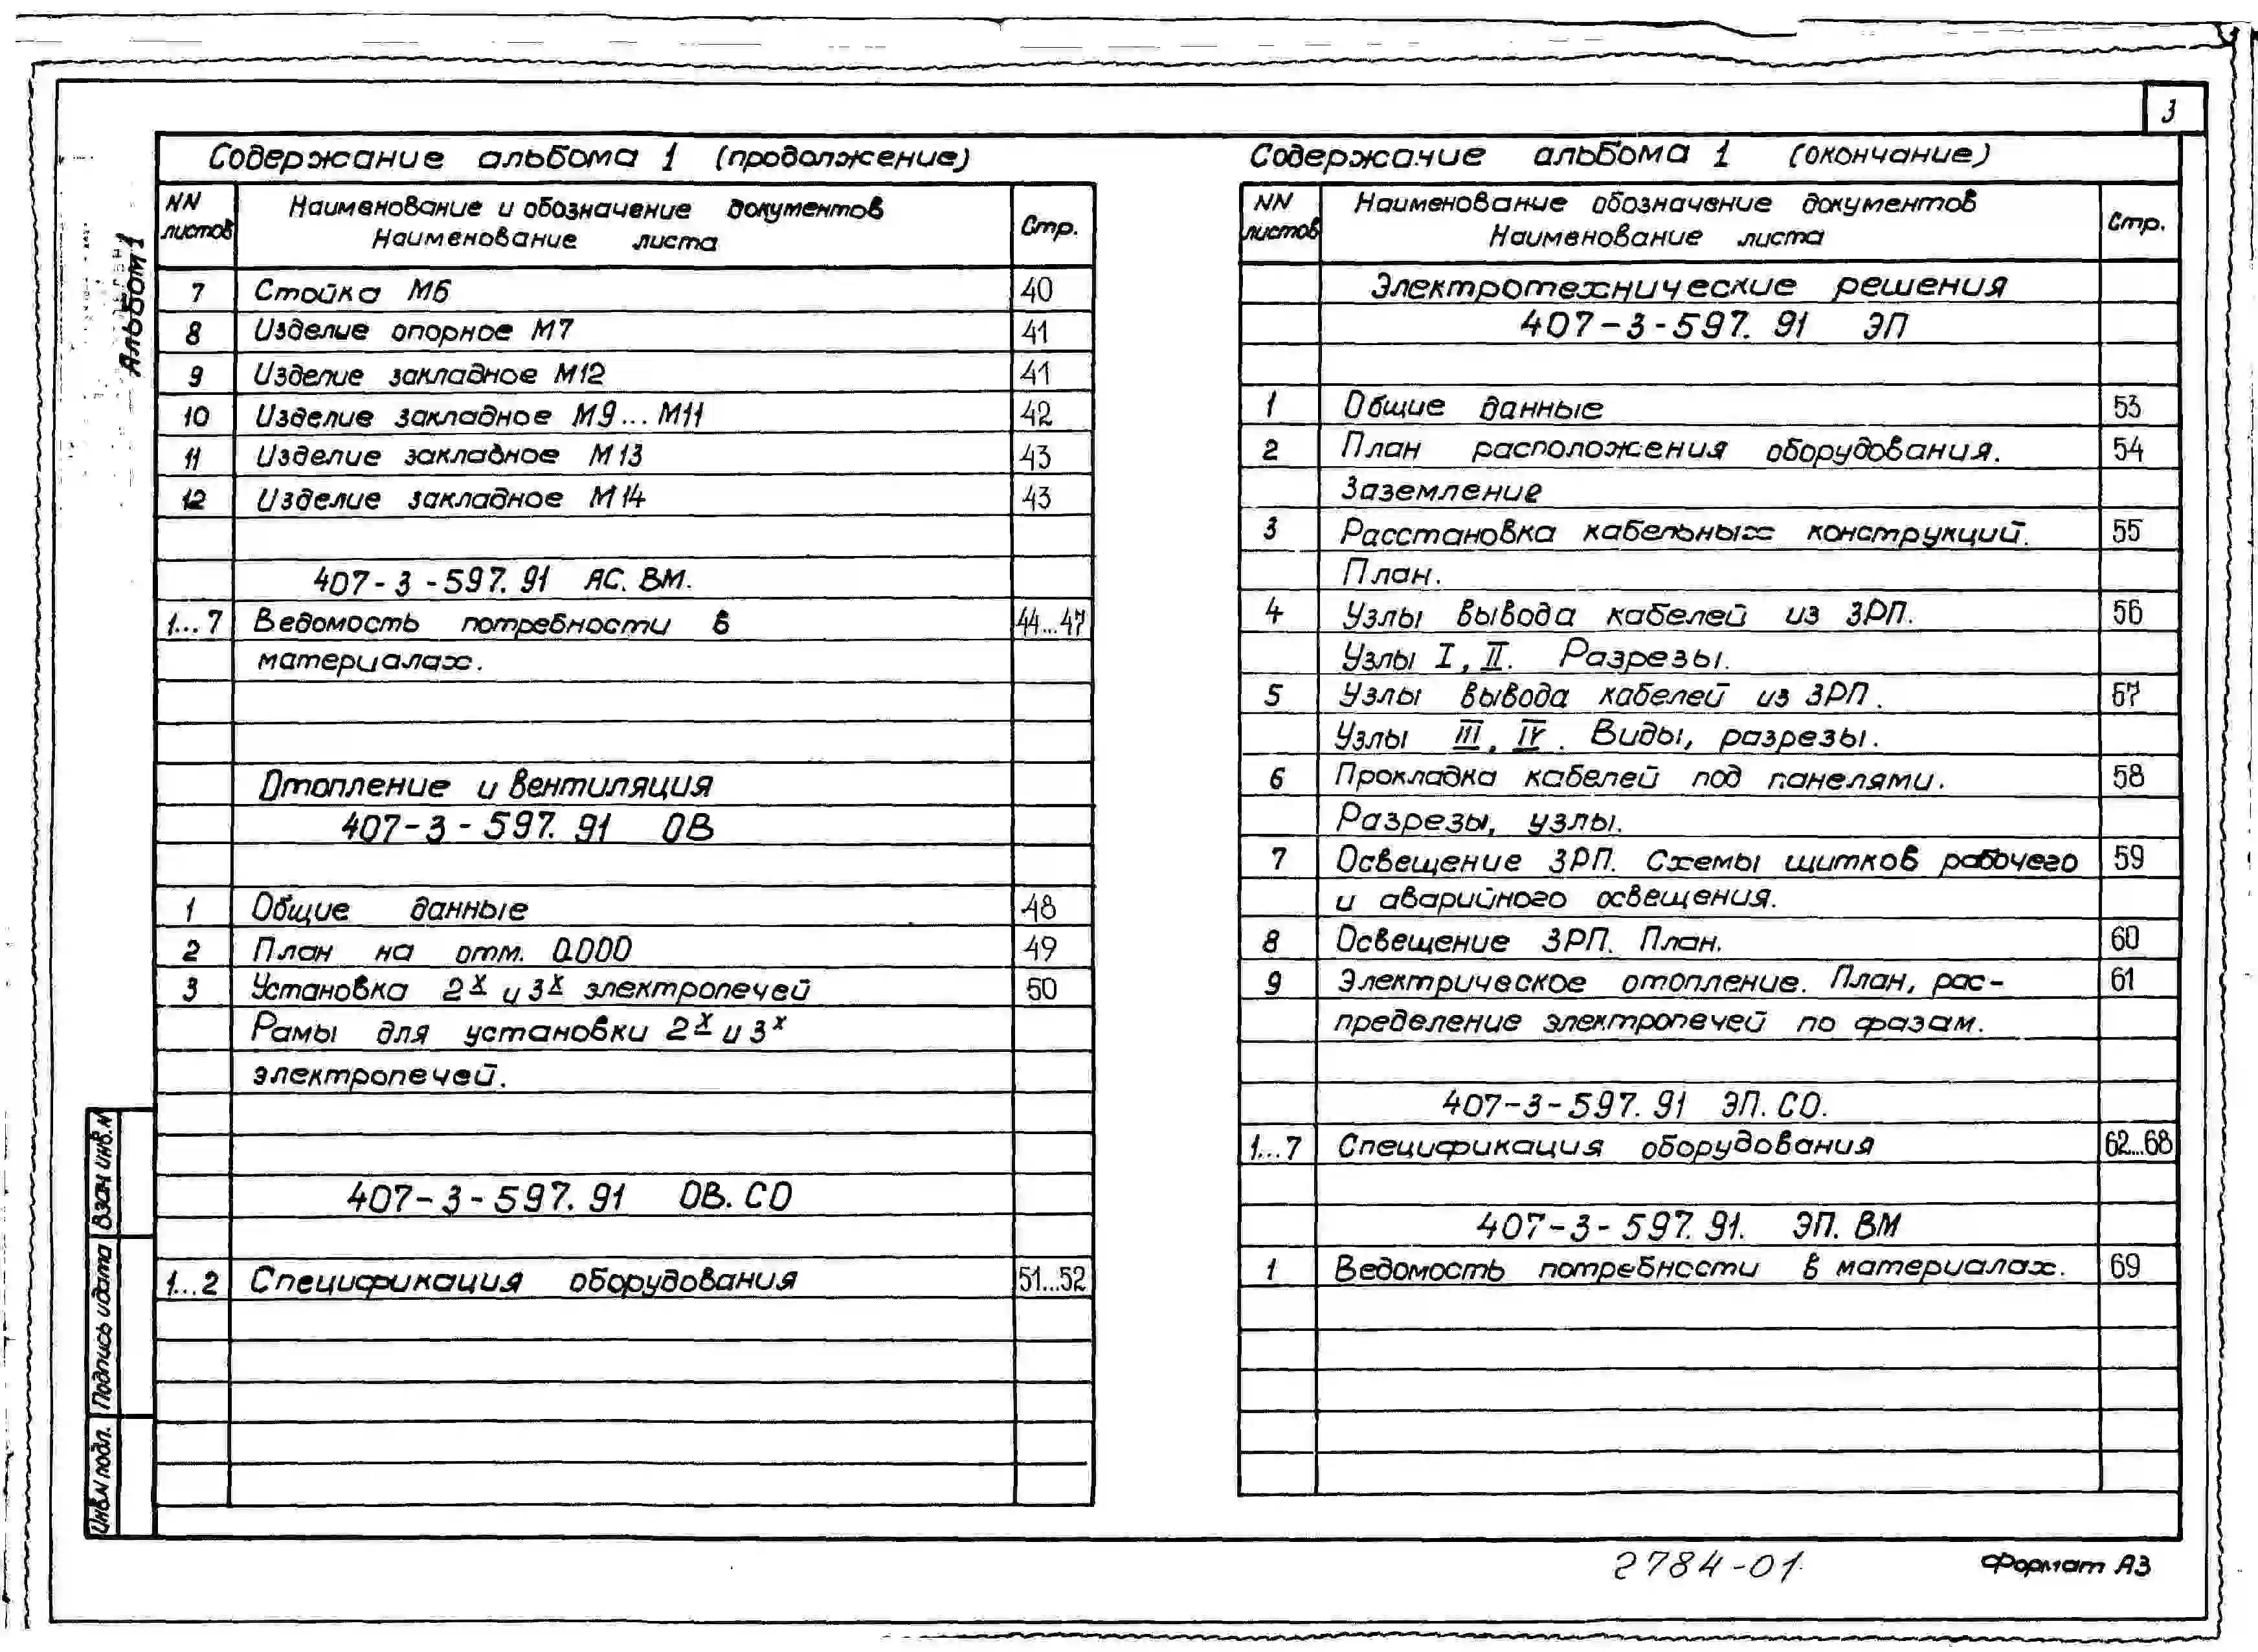 3
Альбом 1
Содержание альбома 1 (продолжение)
NN листов
Наименование и обозначение документов
Наименование листа
Стр.
7 Стойка М6 40
8 Изделие опорное М7 41
9 Изделие закладное М12 41
10 Изделие закладное М9...М11 42
11 Изделие закладное М13 43
12 Изделие закладное М14 43
407-3-597.91 АС.ВМ.
1...7 Ведомость потребности в 44...47
материалах.
Отопление и вентиляция
407-3-597.91 ОВ
1 Общие данные 48
2 План на отм. 0.000 49
3 Установка 2х и 3х электропечей 50
Рамы для установки 2х и 3х
электропечей.
407-3-597.91 ОВ.СО
1...2 Спецификация оборудования 51...52
Содержание альбома 1 (окончание)
NN листов
Наименование обозначение документов
Наименование листа
Стр.
Электротехнические решения
407-3-597.91 ЭП
1 Общие данные 53
2 План расположения оборудования. 54
Заземление
3 Расстановка кабельных конструкций. 55
План.
4 Узлы вывода кабелей из ЗРП. 56
Узлы I, II. Разрезы.
5 Узлы вывода кабелей из ЗРП. 57
Узлы III, IV. Виды, разрезы.
6 Прокладка кабелей под панелями. 58
Разрезы, узлы.
7 Освещение ЗРП. Схемы щитков рабочего 59
и аварийного освещения.
8 Освещение ЗРП. План. 60
9 Электрическое отопление. План, рас- 61
пределение электропечей по фазам.
407-3-597.91 ЭП.СО.
1...7 Спецификация оборудования 62...68
407-3-597.91. ЭП.ВМ
1 Ведомость потребности в материалах. 69
Взам инв.N
Подпись и дата
Инв.N подл.
2784-01
Формат А3